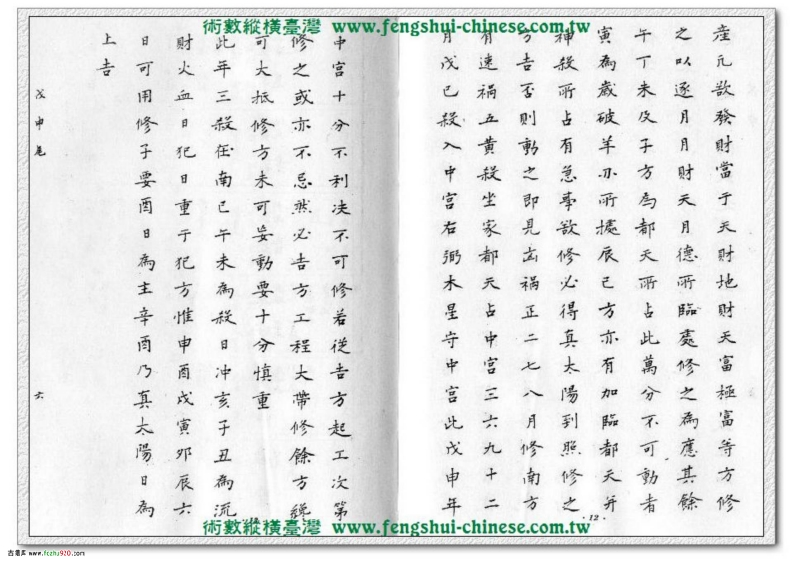 術數縱橫臺灣 www.fengshui-chinese.com.tw
產凡欲發財當于天財地財天富極富等方修
之以逐月月財天月德所臨處修之為應其餘
午丁未及子方為都天所占此萬分不可動者
寅為歲破羊亦所據辰巳方亦有加臨都天并
神殺所占有急事欲修必得真太陽到照修之
方吉否則動之即見凶禍正二七八月修南方
有速禍五黃殺坐家都天占中宮三六九十二
月戊己殺入中宮右弼木星守中宮此戊申年
12
中宮十分不利决不可修若從吉方起工次第
修之或亦不忌然必吉方工程大帶修餘方纔
可大抵修方未可妄動要十分慎重
此年三殺在南巳午未為殺日冲亥子丑為流
財火血日犯日重于犯方惟申酉戌寅夘辰六
日可用修子要酉日為主辛酉乃真太陽日為
上吉
戊申尾
六
術數縱橫臺灣 www.fengshui-chinese.com.tw
古易库 www.fczhu920.com